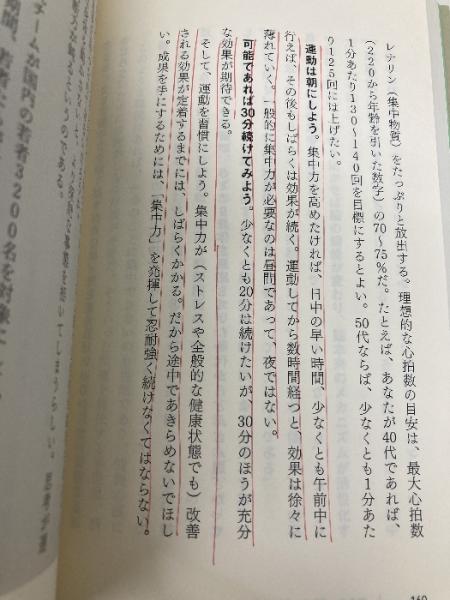 レナリン（集中物質）をたっぷりと放出する。理想的な心拍数の目安は、最大心拍数
（220から年齢を引いた数字）の70〜75％だ。たとえば、あなたが40代であれば、
1分あたり130〜140回を目標にするとよい。50代ならば、少なくとも1分あた
り125回には上げたい。
運動は朝にしよう。集中力を高めたければ、日中の早い時間、少なくとも午前中に
行えば、その後もしばらくは効果が続く。運動してから数時間経つと、効果は徐々に
薄れていく。一般的に集中力が必要なのは昼間であって、夜ではない。
可能であれば30分続けてみよう。少なくとも20分は続けたいが、30分のほうが充分
な効果が期待できる。
そして、運動を習慣にしよう。集中力が（ストレスや全般的な健康状態でも）改善
される効果が定着するまでには、しばらくかかる。だから途中であきらめないでほし
い。成果を手にするためには、「集中力」を発揮して忍耐強く続けなくてはならない。
160
のである。
者3200名を対象に